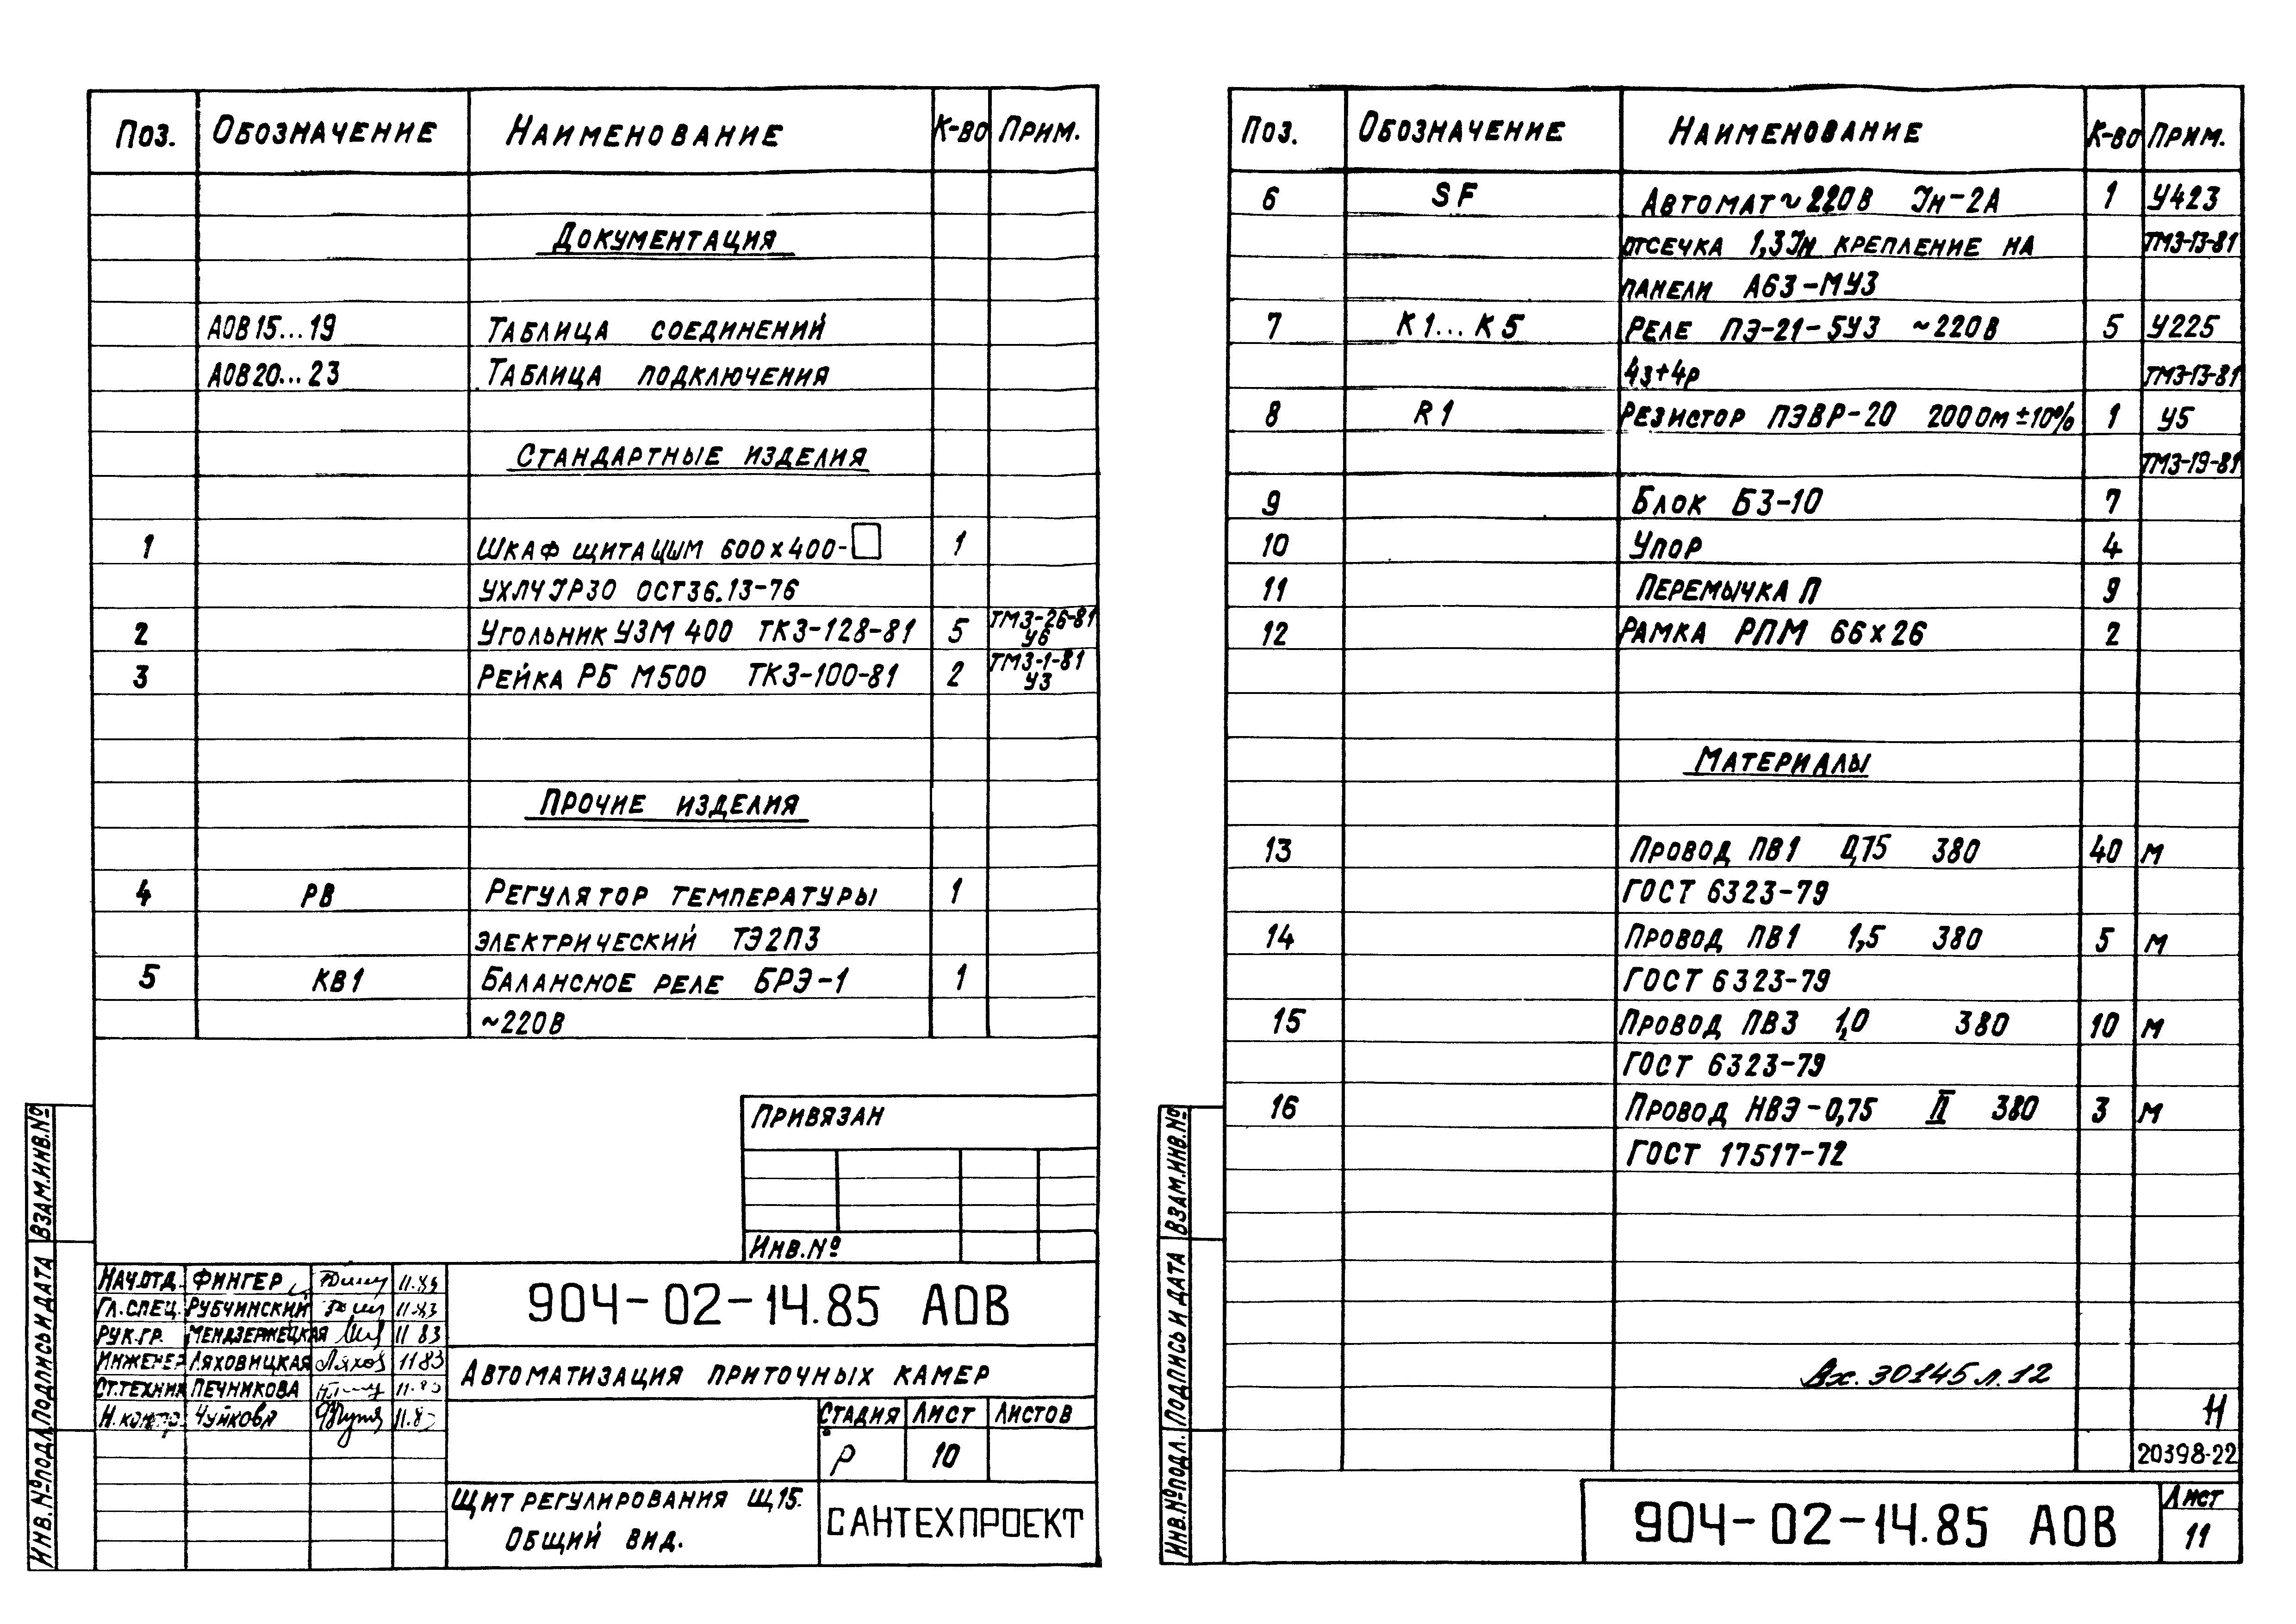 Поз. Обозначение Наименование К-во Прим.
Документация
АОВ15...19 Таблица соединений
АОВ20...23 Таблица подключения
Стандартные изделия
1 Шкаф щита ЩШМ 600х400-□ 1
УХЛ4 IР30 ОСТ36.13-76
2 Угольник УЗМ 400 ТКЗ-128-81 5 ТМ3-26-81 У6
3 Рейка РБ М500 ТКЗ-100-81 2 ТМ3-1-81 У3
Прочие изделия
4 РВ Регулятор температуры 1
электрический ТЭ2П3
5 КВ1 Балансное реле БРЭ-1 1
~220В
Привязан
Инв.№
Нач.отд. Фингер 11.83
Гл.спец. Рубчинский 11.83
Рук.гр. Мендзержецкая 11 83
Инженер Ляховицкая Ляхов 11 83
Ст.техник Печникова 11.83
Н.контр. Чуйкова 11.83
904-02-14.85 АОВ
Автоматизация приточных камер
Стадия Лист Листов
Р 10
Щит регулирования Щ15.
Общий вид.
САНТЕХПРОЕКТ
Взам.инв.№
Подпись и дата
Инв.№подл.
Поз. Обозначение Наименование К-во Прим.
6 SF Автомат ~220В Iн-2А 1 У423
отсечка 1,3Iн крепление на ТМ3-13-81
панели А63-МУ3
7 К1...К5 Реле ПЭ-21-5У3 ~220В 5 У225
4з+4р ТМ3-13-81
8 R1 Резистор ПЭВР-20 200Ом±10% 1 У5
ТМ3-19-81
9 Блок БЗ-10 7
10 Упор 4
11 Перемычка П 9
12 Рамка РПМ 66х26 2
Материалы
13 Провод ПВ1 0,75 380 40 м
ГОСТ 6323-79
14 Провод ПВ1 1,5 380 5 м
ГОСТ 6323-79
15 Провод ПВ3 1,0 380 10 м
ГОСТ 6323-79
16 Провод НВЭ-0,75 II 380 3 м
ГОСТ 17517-72
Вх. 30145 л.12
11
20398-22
904-02-14.85 АОВ
Лист
11
Взам.инв.№
Подпись и дата
Инв.№подл.